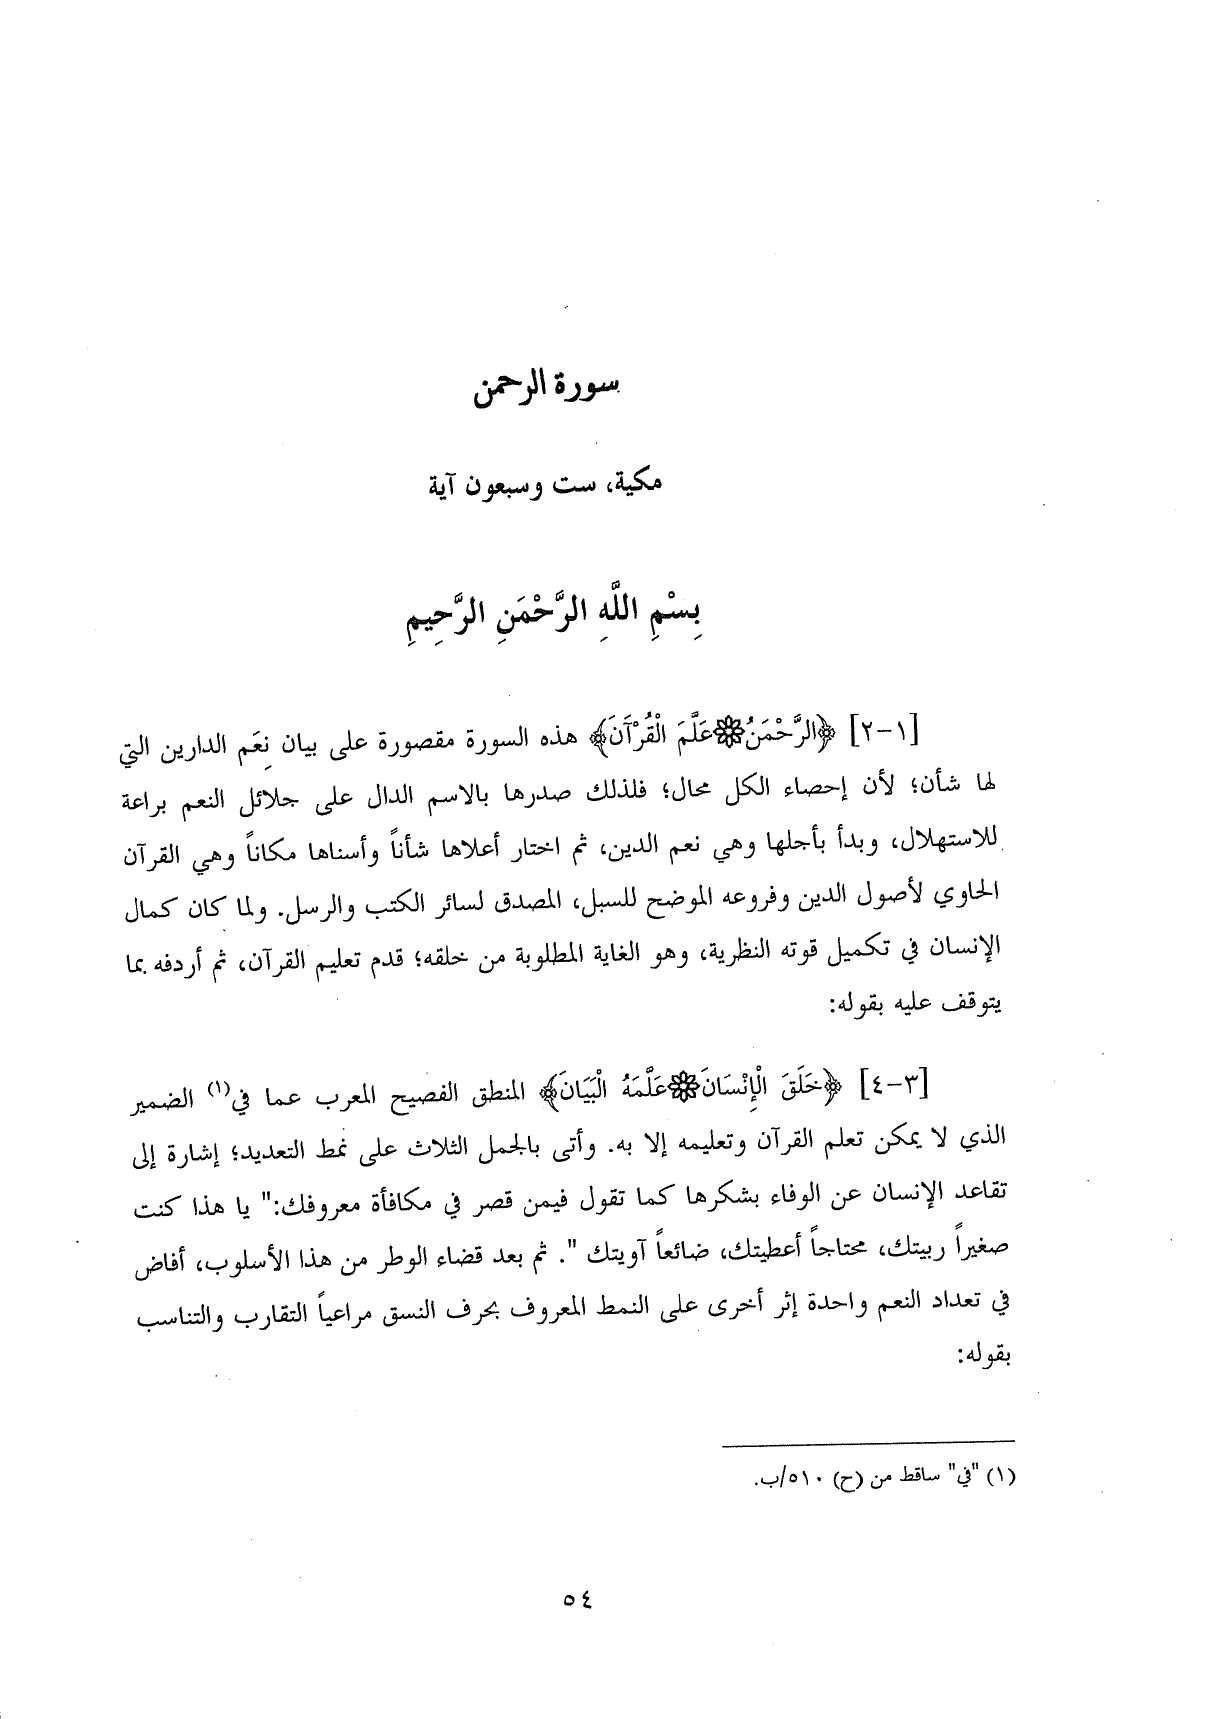 سورة الرحمن
مكية، ست وسبعون آية
بِسْمِ اللَّهِ الرَّحْمَنِ الرَّحِيمِ
[١-٢] ﴿الرَّحْمَنُ۞عَلَّمَ الْقُرْآَنَ﴾ هذه السورة مقصورة على بيان نِعَم الدارين التي
لها شأن؛ لأن إحصاء الكل محال؛ فلذلك صدرها بالاسم الدال على جلائل النعم براعة
للاستهلال، وبدأ بأجلها وهي نعم الدين، ثم اختار أعلاها شأناً وأسناها مكاناً وهي القرآن
الحاوي لأصول الدين وفروعه الموضح للسبل، المصدق لسائر الكتب والرسل. ولما كان كمال
الإنسان في تكميل قوته النظرية، وهو الغاية المطلوبة من خلقه؛ قدم تعليم القرآن، ثم أردفه بما
يتوقف عليه بقوله:
[٣-٤] ﴿خَلَقَ الْإِنْسَانَ۞عَلَّمَهُ الْبَيَانَ﴾ المنطق الفصيح المعرب عما في(١) الضمير
الذي لا يمكن تعلم القرآن وتعليمه إلا به. وأتى بالجمل الثلاث على نمط التعديد؛ إشارة إلى
تقاعد الإنسان عن الوفاء بشكرها كما تقول فيمن قصر في مكافأة معروفك:" يا هذا كنت
صغيراً ربيتك، محتاجاً أعطيتك، ضائعاً آويتك ". ثم بعد قضاء الوطر من هذا الأسلوب، أفاض
في تعداد النعم واحدة إثر أخرى على النمط المعروف بحرف النسق مراعياً التقارب والتناسب
بقوله:
(١) "في" ساقط من (ح) ٥١٠/ب.
٥٤